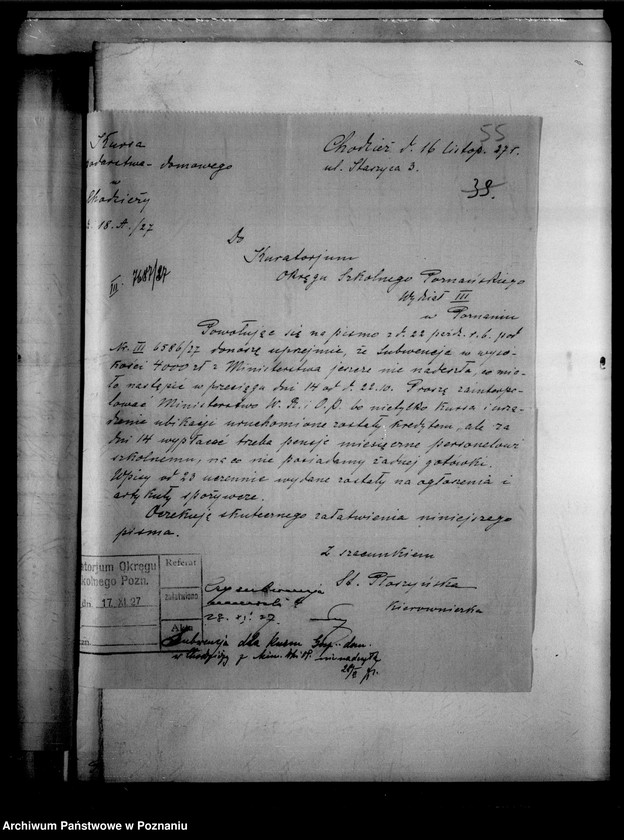 55
Kursa
Chodzież d. 16 listop. 27 r.
podarstwa domowego
ul. Staszyca 3.
w
39.
Chodzieży
18. A./27
Do
III. 7687/27
Kuratorjum
Okręgu Szkolnego Poznańskiego
Wydział III
w Poznaniu
Powołując się na pismo z d. 22 paźd. r. b. pod
Nr. III 6586/27 donoszę uprzejmie, że Subwencja w wyso-
kości 4000 zł z Ministerstwa jeszcze nie nadeszła, co mia-
ło nastąpić w przeciągu dni 14 od d. 22.10. Proszę zainterpe-
lować Ministerstwo W. R. i O. P. bo nietylko kursa i urzą-
dzenie ubikacji uruchomione zostały kredytem, ale za
dni 14 wypłacać trzeba pensje miesięczne personelowi
szkolnemu, na co nie posiadamy żadnej gotówki.
Wpisy od 23 uczennic wydane zostały na ogłoszenia i
artykuły spożywcze.
Oczekuję skutecznego załatwienia niniejszego
pisma.
Z szacunkiem
St. Płoszyńska
Kierowniczka
atorjum Okręgu
kolnego Pozn.
dn. 17 XI. 27
Referat
Załatwiono
Akta
Czy subwencja
nadeszła?
23. XI. 27
Subwencja dla Kursu Gosp. dom.
w Chodzieży z Min. nie nadeszła
Archiwum Państwowe w Poznaniu